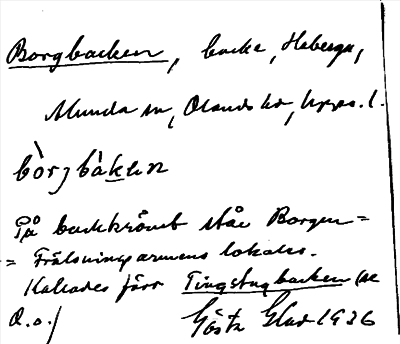 Borgbacken, backe, Heberga,
Almunda sn, Olands hd, Upps. l.
bòrjbàken
På backkrönet står Borgen =
= Frälsningsarmens lokaler.
Kallades förr Tingstugbacken (se
d.o.)
Gösta Glad 1936